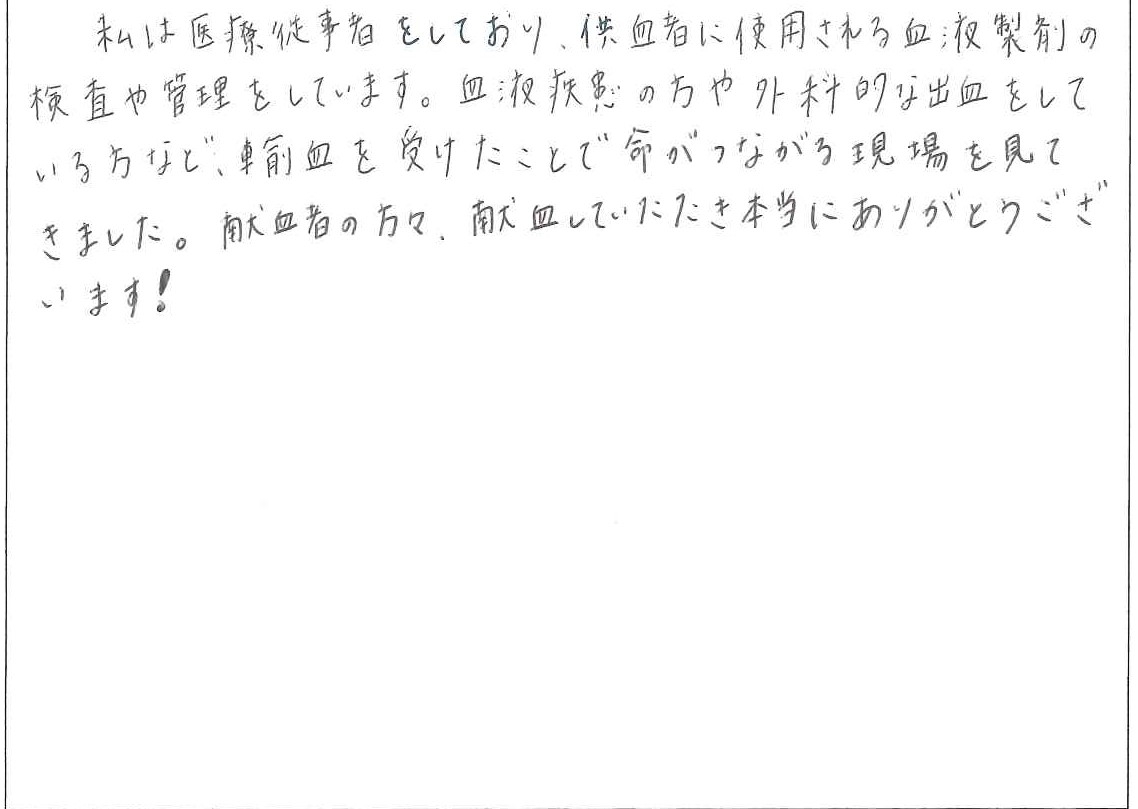 私は医療従事者をしており、供血者に使用される血液製剤の
検査や管理をしています。血液疾患の方や外科的な出血をして
いる方など、輸血を受けたことで命がつながる現場を見て
きました。献血者の方々、献血していただき本当にありがとうござ
います!